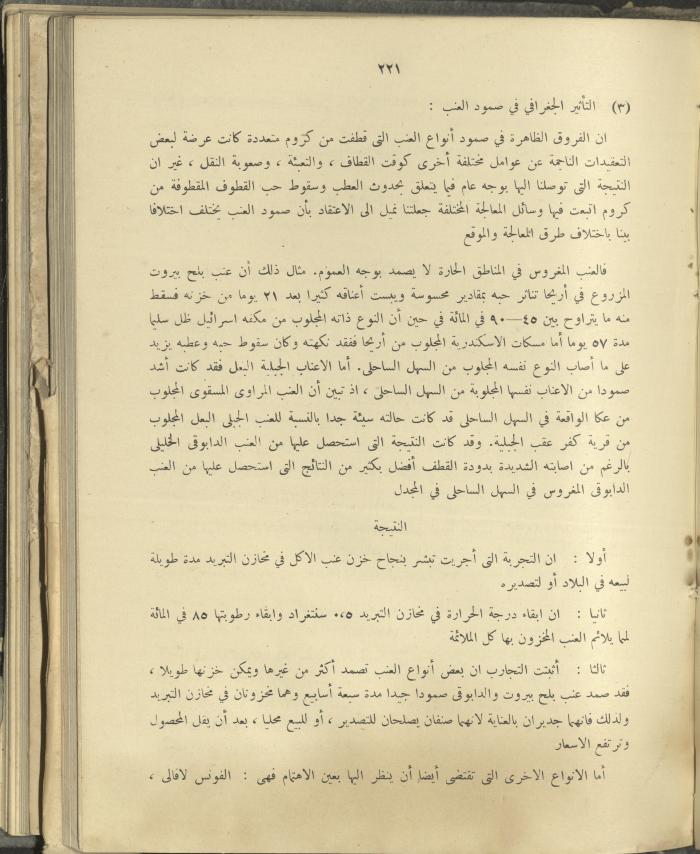 ٢٢١
(٣) التأثير الجغرافي في صمود العنب :
ان الفروق الظاهرة في صمود أنواع العنب التى قطفت من كروم متعددة كانت عرضة لبعض
التعقيدات الناجمة عن عوامل مختلفة أخرى كوقت القطاف ، والتعبئة ، وصعوبة النقل ، غير ان
النتيجة التى توصلنا اليها بوجه عام فيما يتعلق بحدوث العطب وسقوط حب القطوف المقطوفة من
كروم اتبعت فيها وسائل المعالجة المختلفة جعلتنا نميل الى الاعتقاد بأن صمود العنب يختلف اختلافا
بينا باختلاف طرق المعالجة والموقع
فالعنب المغروس في المناطق الحارة لا يصمد بوجه العموم. مثال ذلك أن عنب بلح بيروت
المزروع في أريحا تناثر حبه بمقادير محسوسة ويبست أعناقه كثيرا بعد ٢١ يوما من خزنه فسقط
منه ما يتراوح بين ٤٥—٩٠ في المائة في حين أن النوع ذاته المجلوب من مكفه اسرائيل ظل سليما
مدة ٥٧ يوما أما مسكات الاسكندرية المجلوب من أريحا ففقد نكهته وكان سقوط حبه وعطبه يزيد
على ما أصاب النوع نفسه المجلوب من السهل الساحلى. أما الاعناب الجبلية البعل فقد كانت أشد
صمودا من الاعناب نفسها المجلوبة من السهل الساحلى ، اذ تبين أن العنب المراوى المسقوى المجلوب
من عكا الواقعة في السهل الساحلى قد كانت حالته سيئة جدا بالنسبة للعنب الجبلى البعل المجلوب
من قرية كفر عقب الجبلية. وقد كانت النتيجة التى استحصل عليها من العنب الدابوقى الخليلى
بالرغم من اصابته الشديدة بدودة القطف أفضل بكثير من النتائج التى استحصل عليها من العنب
الدابوقى المغروس في السهل الساحلى في المجدل
النتيجة
أولا : ان التجربة التى أجريت تبشر بنجاح خزن عنب الاكل في مخازن التبريد مدة طويلة
لبيعه في البلاد أو لتصديره
ثانيا : ان ابقاء درجة الحرارة في مخازن التبريد ٠,٥ سنتغراد وابقاء رطوبتها ٨٥ في المائة
لمما يلائم العنب المخزون بها كل الملائمة
ثالثا : أثبتت التجارب ان بعض أنواع العنب تصمد أكثر من غيرها ويمكن خزنها طويلا ،
فقد صمد عنب بلح بيروت والدابوقى صمودا جيدا مدة سبعة أسابيع وهما مخزونان في مخازن التبريد
ولذلك فانهما جديران بالعناية لانهما صنفان يصلحان للتصدير ، أو للبيع محليا ، بعد أن يقل المحصول
وترتفع الاسعار
أما الانواع الاخرى التى تقتضى أيضا أن ينظر اليها بعين الاهتمام فهى : الفونس لافالى ،